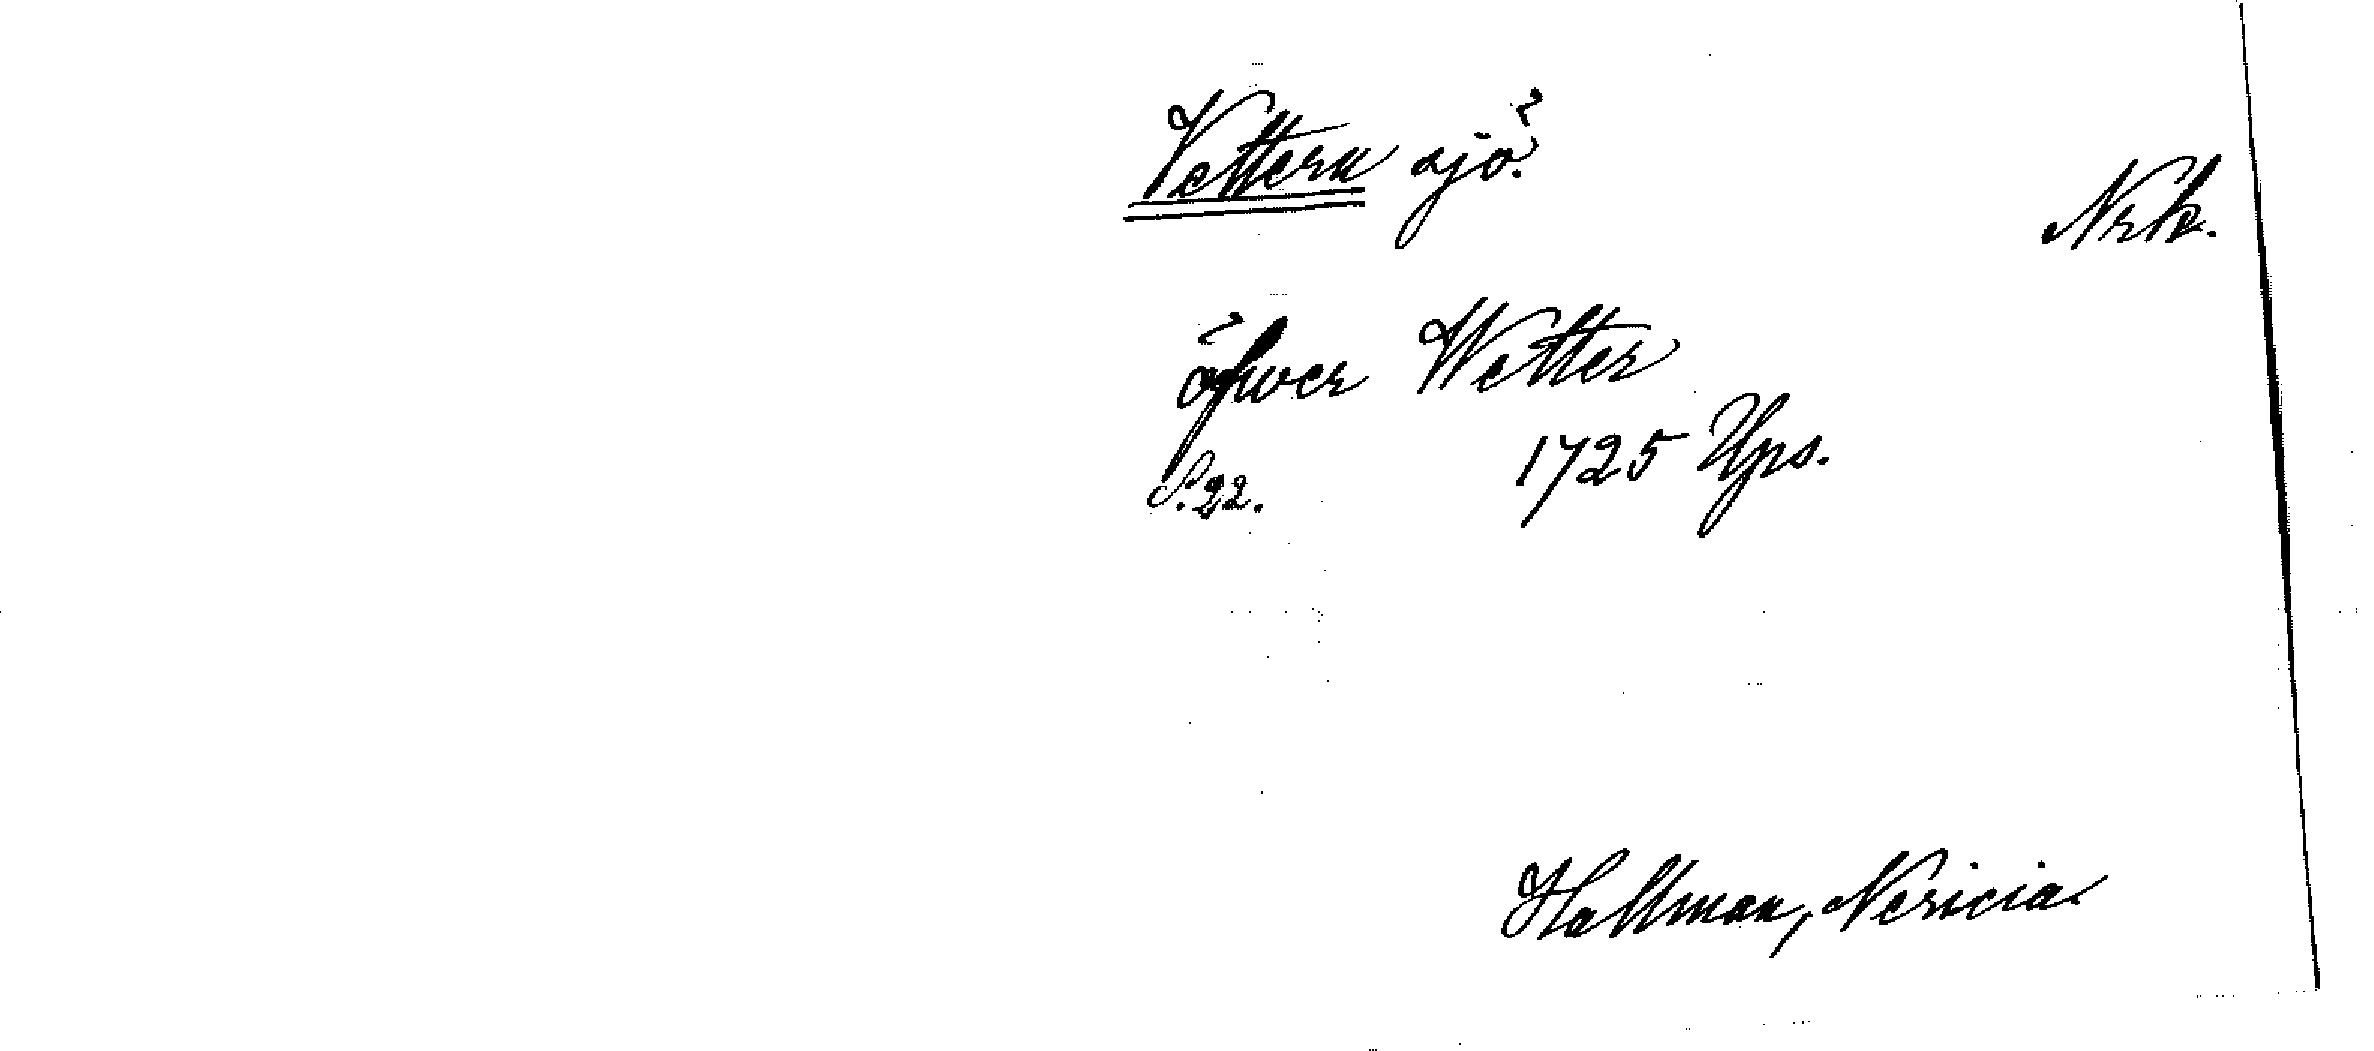 Vettern sjö.
Nrk.
öfwer Wetter
S. 22. 1725 Ups.
Hallman, Nericia